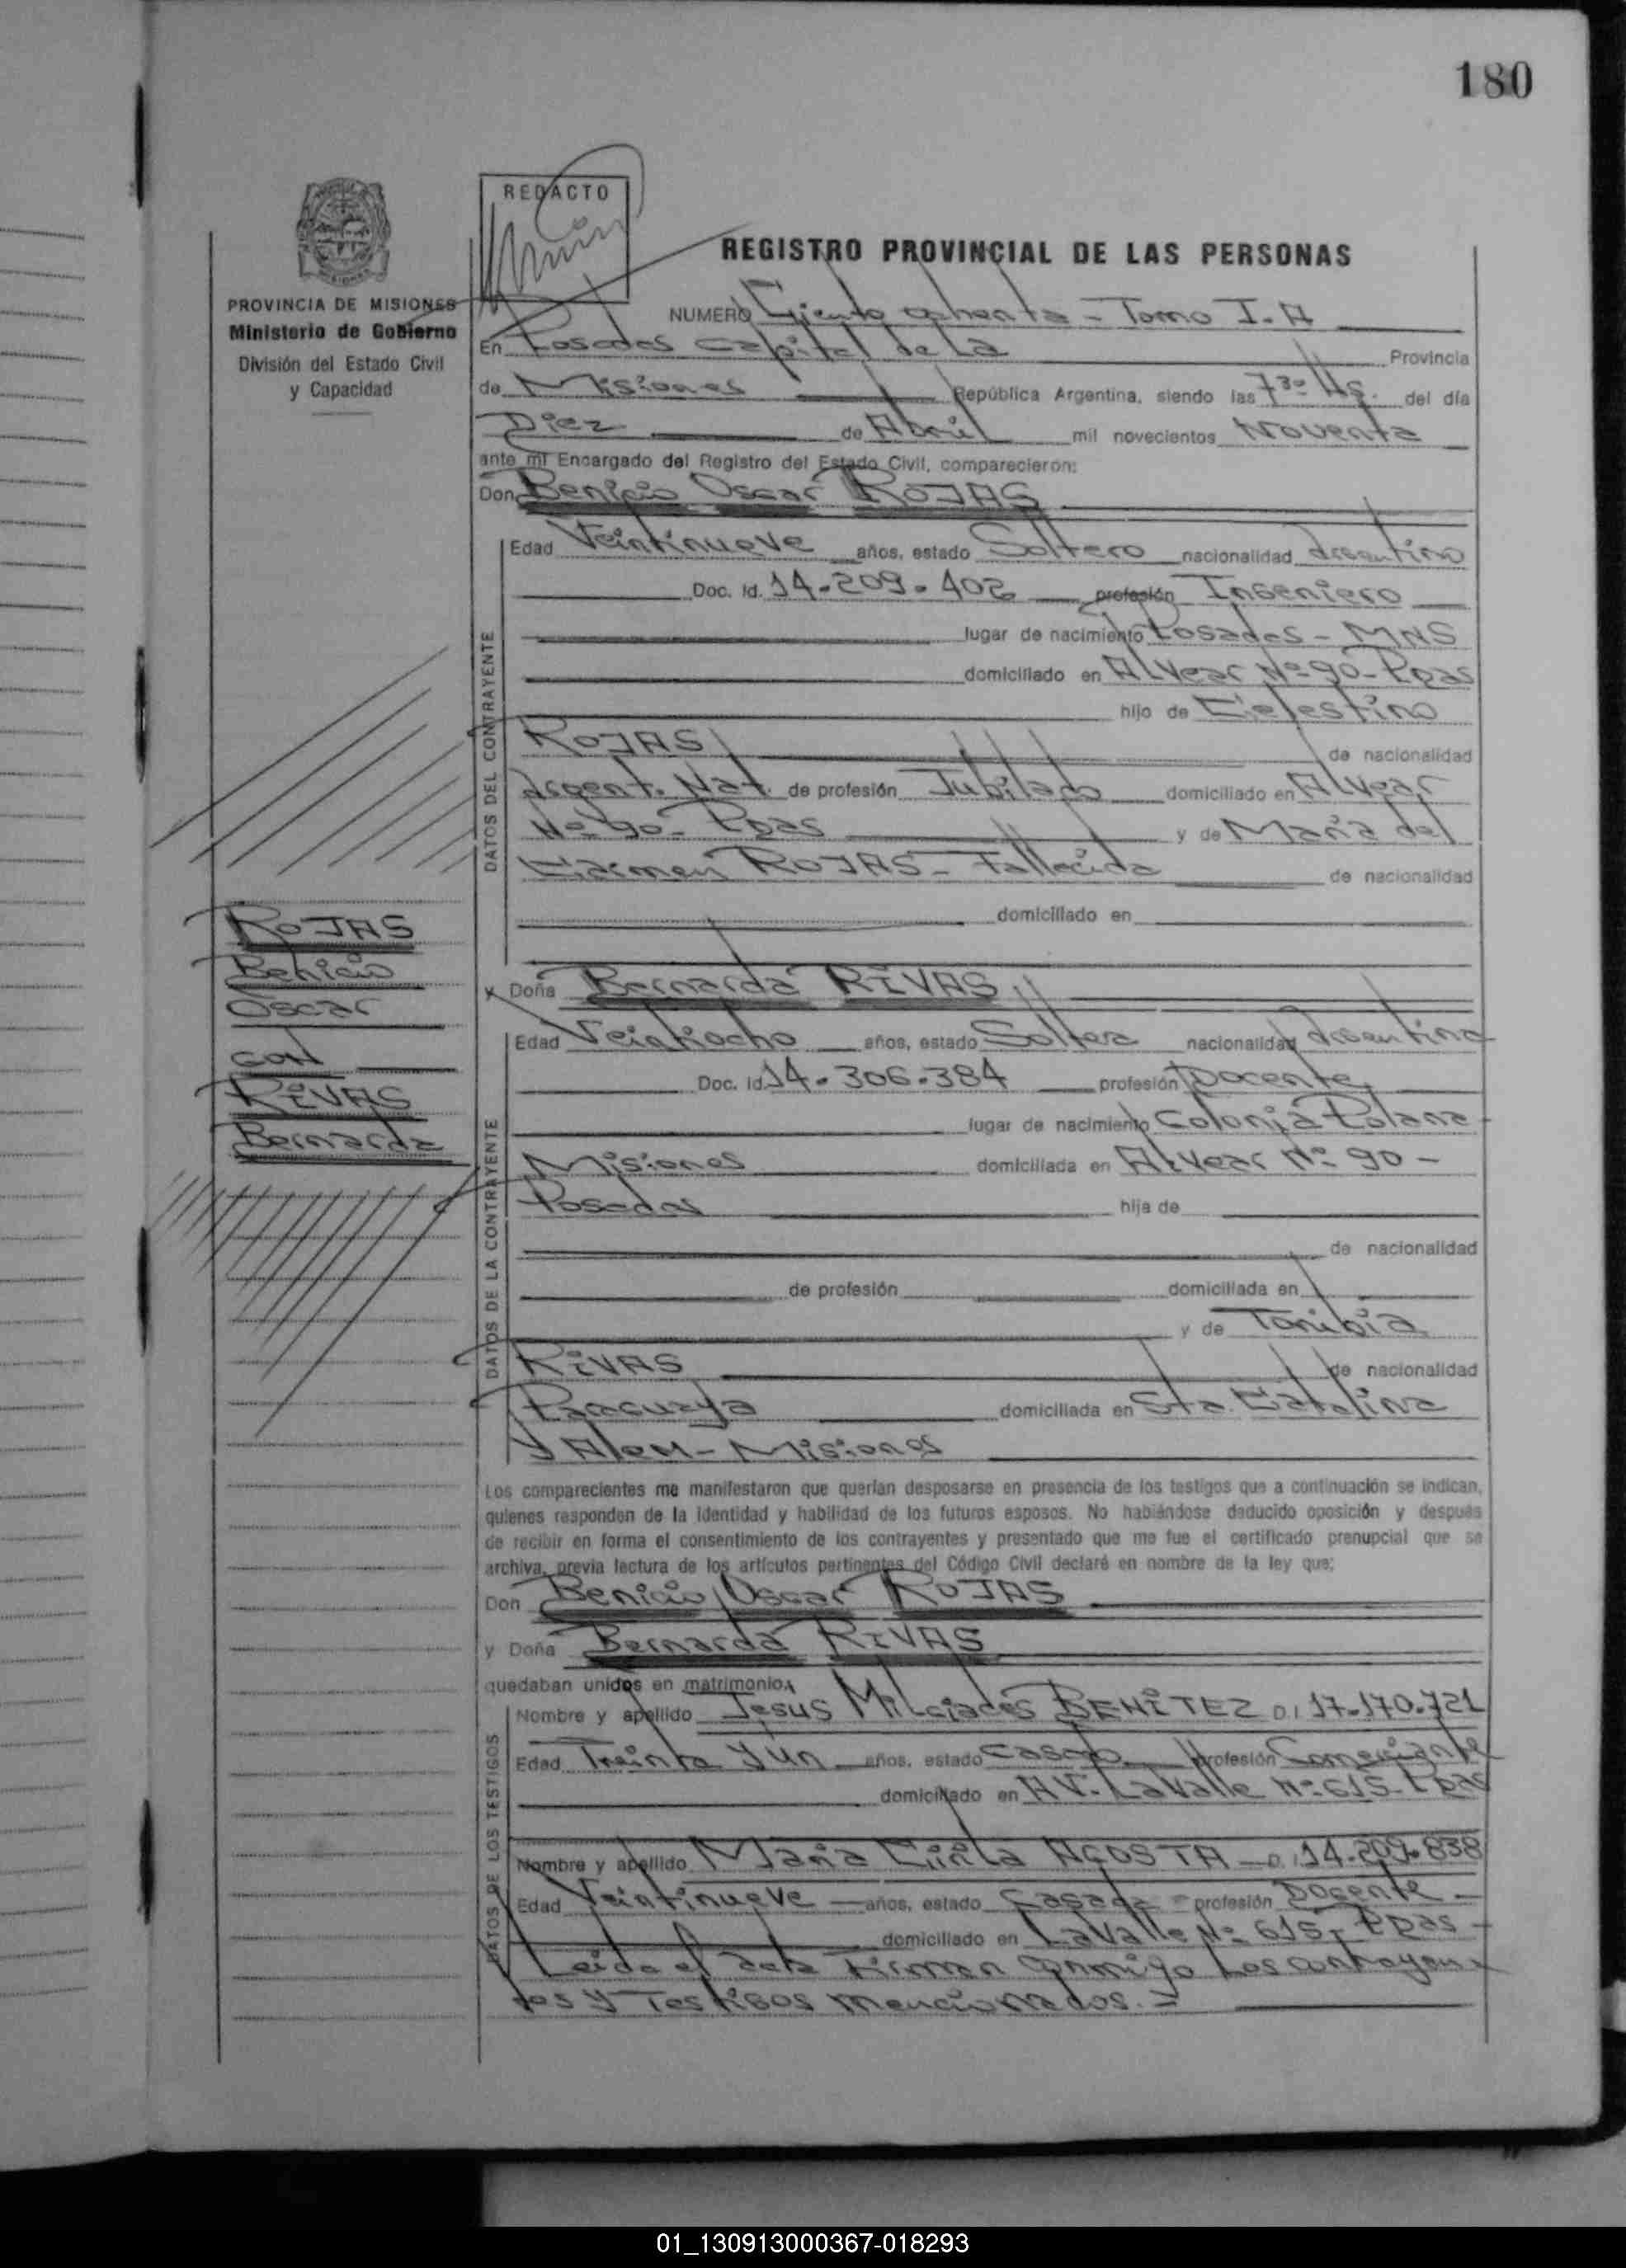 180
REDACTO
REGISTRO PROVINCIAL DE LAS PERSONAS
PROVINCIA DE MISIONES
Ministerio de Gobierno
División del Estado Civil
y Capacidad
NUMERO Ciento ochenta - Tomo I-A
En Posadas Capital de La Provincia
de Misiones República Argentina, siendo las 7³⁰ Hs. del día
Diez de Abril mil novecientos Noventa
ante mí Encargado del Registro del Estado Civil, comparecieron:
Don Benicio Oscar ROJAS
DATOS DEL CONTRAYENTE
Edad Veintinueve años, estado Soltero nacionalidad Argentino
Doc. Id. 14-209-402 profesión Ingeniero
lugar de nacimiento Posadas - MNS
domiciliado en Alvear Nº 90 - Ppas
hijo de Celestino
ROJAS de nacionalidad
Argent. Nat. de profesión Jubilado domiciliado en Alvear
Nº 90 - Ppas y de Maria del
Carmen ROJAS - Fallecida de nacionalidad
domiciliado en
ROJAS
Benicio
Oscar
con
RIVAS
Bernarda
y Doña Bernarda RIVAS
DATOS DE LA CONTRAYENTE
Edad Veintiocho años, estado Soltera nacionalidad Argentina
Doc. Id. 14-306-384 profesión Docente
lugar de nacimiento Colonia Polana -
Misiones domiciliada en Alvear Nº 90 -
Posadas hija de
de nacionalidad
de profesión domiciliada en
y de Toribia
RIVAS de nacionalidad
Paraguaya domiciliada en Sta. Catalina
y Alem - Misiones
Los comparecientes me manifestaron que querían desposarse en presencia de los testigos que a continuación se indican,
quienes responden de la identidad y habilidad de los futuros esposos. No habiéndose deducido oposición y después
de recibir en forma el consentimiento de los contrayentes y presentado que me fue el certificado prenupcial que se
archiva, previa lectura de los artículos pertinentes del Código Civil declaré en nombre de la ley que;
Don Benicio Oscar ROJAS
y Doña Bernarda RIVAS
quedaban unidos en matrimonio.
DATOS DE LOS TESTIGOS
Nombre y apellido Jesus Milciades BENITEZ D.I 17-170.721
Edad Treinta y un años, estado casado profesión Comerciante
domiciliado en AV. Lavalle Nº 615 - Ppas
Nombre y apellido Maria Cirila ACOSTA - D.I 14-209-838
Edad Veintinueve años, estado Casada - profesión Docente -
domiciliado en Lavalle Nº 615 - Ppas -
Leida el acta Firman Conmigo Los contrayen
tes y Testigos mencionados. =
01_130913000367-018293